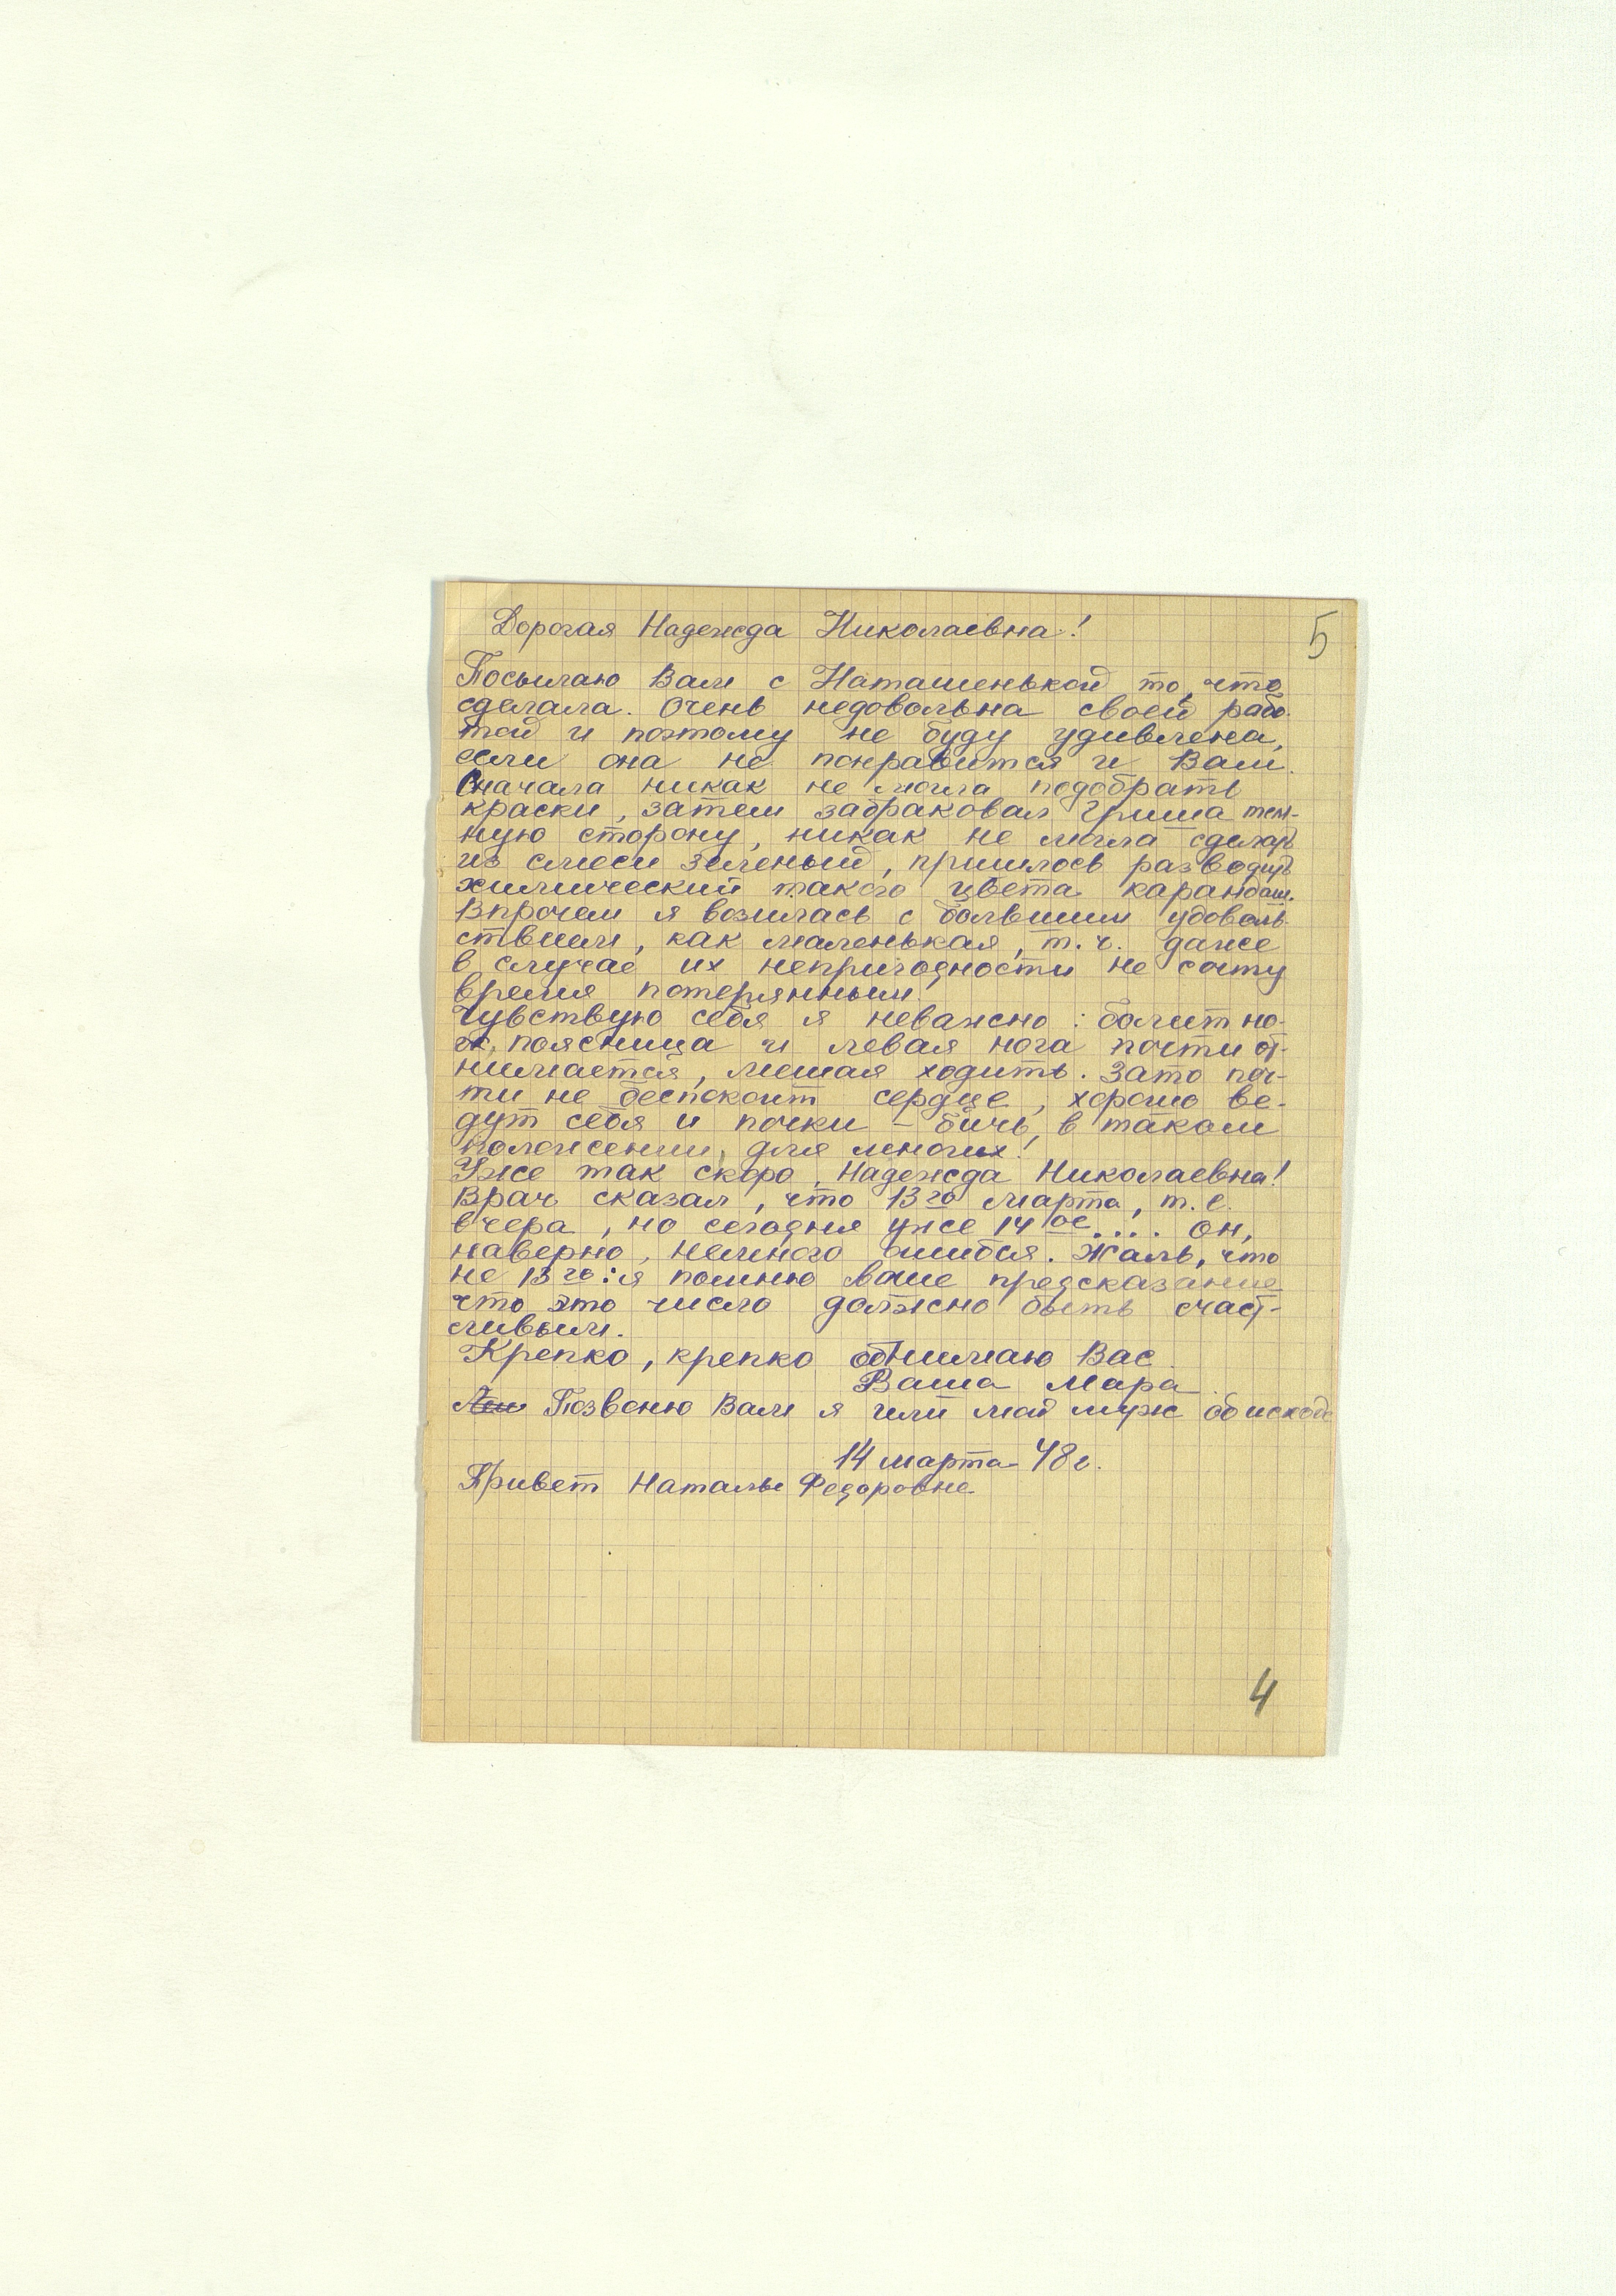 Дорогая Надежда Николаевна!
5
Посылаю Вам с Наташенькой то, что
сделала. Очень недовольна своей рабо-
той и поэтому не буду удивлена,
если она не понравится и Вам.
Сначала никак не могла подобрать
краски, затем забраковал Гриша тем-
ную сторону, никак не могла сделать
из смеси зеленый, пришлось разводить
химический такого цвета карандаш.
Впрочем я возилась с большим удоволь-
ствием, как маленькая, т.ч. даже
в случае их непригодности не сочту
время потерянным.
Чувствую себя я неважно: болит но-
га, поясница и левая нога почти от-
нимается, мешая ходить. Зато поч-
ти не беспокоит сердце, хорошо ве-
дут себя и почки – бичь, в таком
положении, для многих!
Уже так скоро, Надежда Николаевна!
Врач сказал, что 13го марта, т.е.
вчера, но сегодня уже 14ое.... Он,
наверно, немного ошибся. Жаль, что
не 13го: я помню Ваше предсказание
что это число должно быть счаст-
ливым.
Крепко, крепко обнимаю Вас
Ваша Мара.
Позвоню Вам я или мой муж об исходе
14 марта 48г.
Привет Наталье Федоровне
4